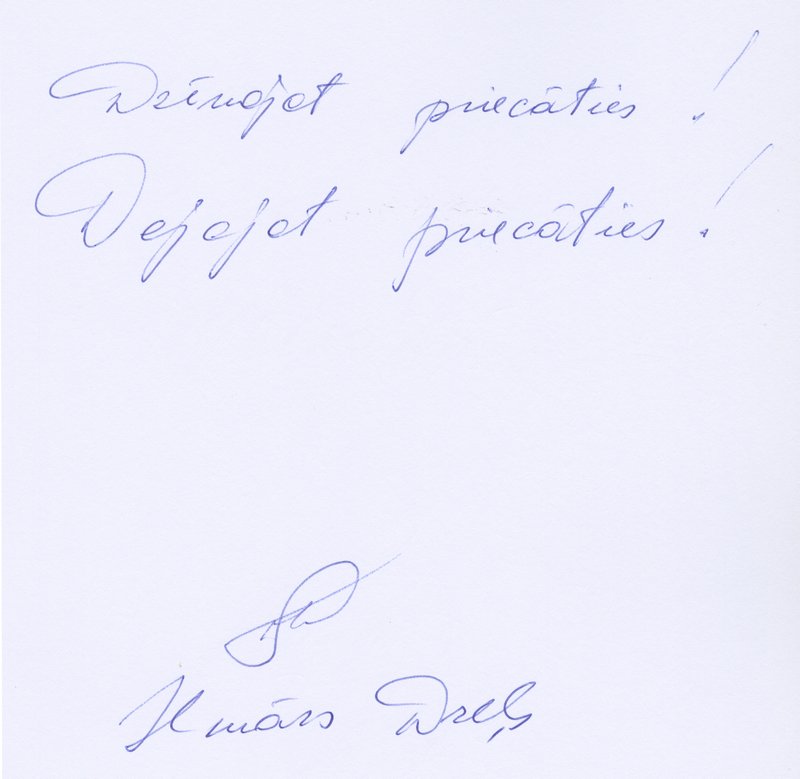 Dzīvojot priecāties!
Dejojot priecāties!
Ilmārs Dreļs